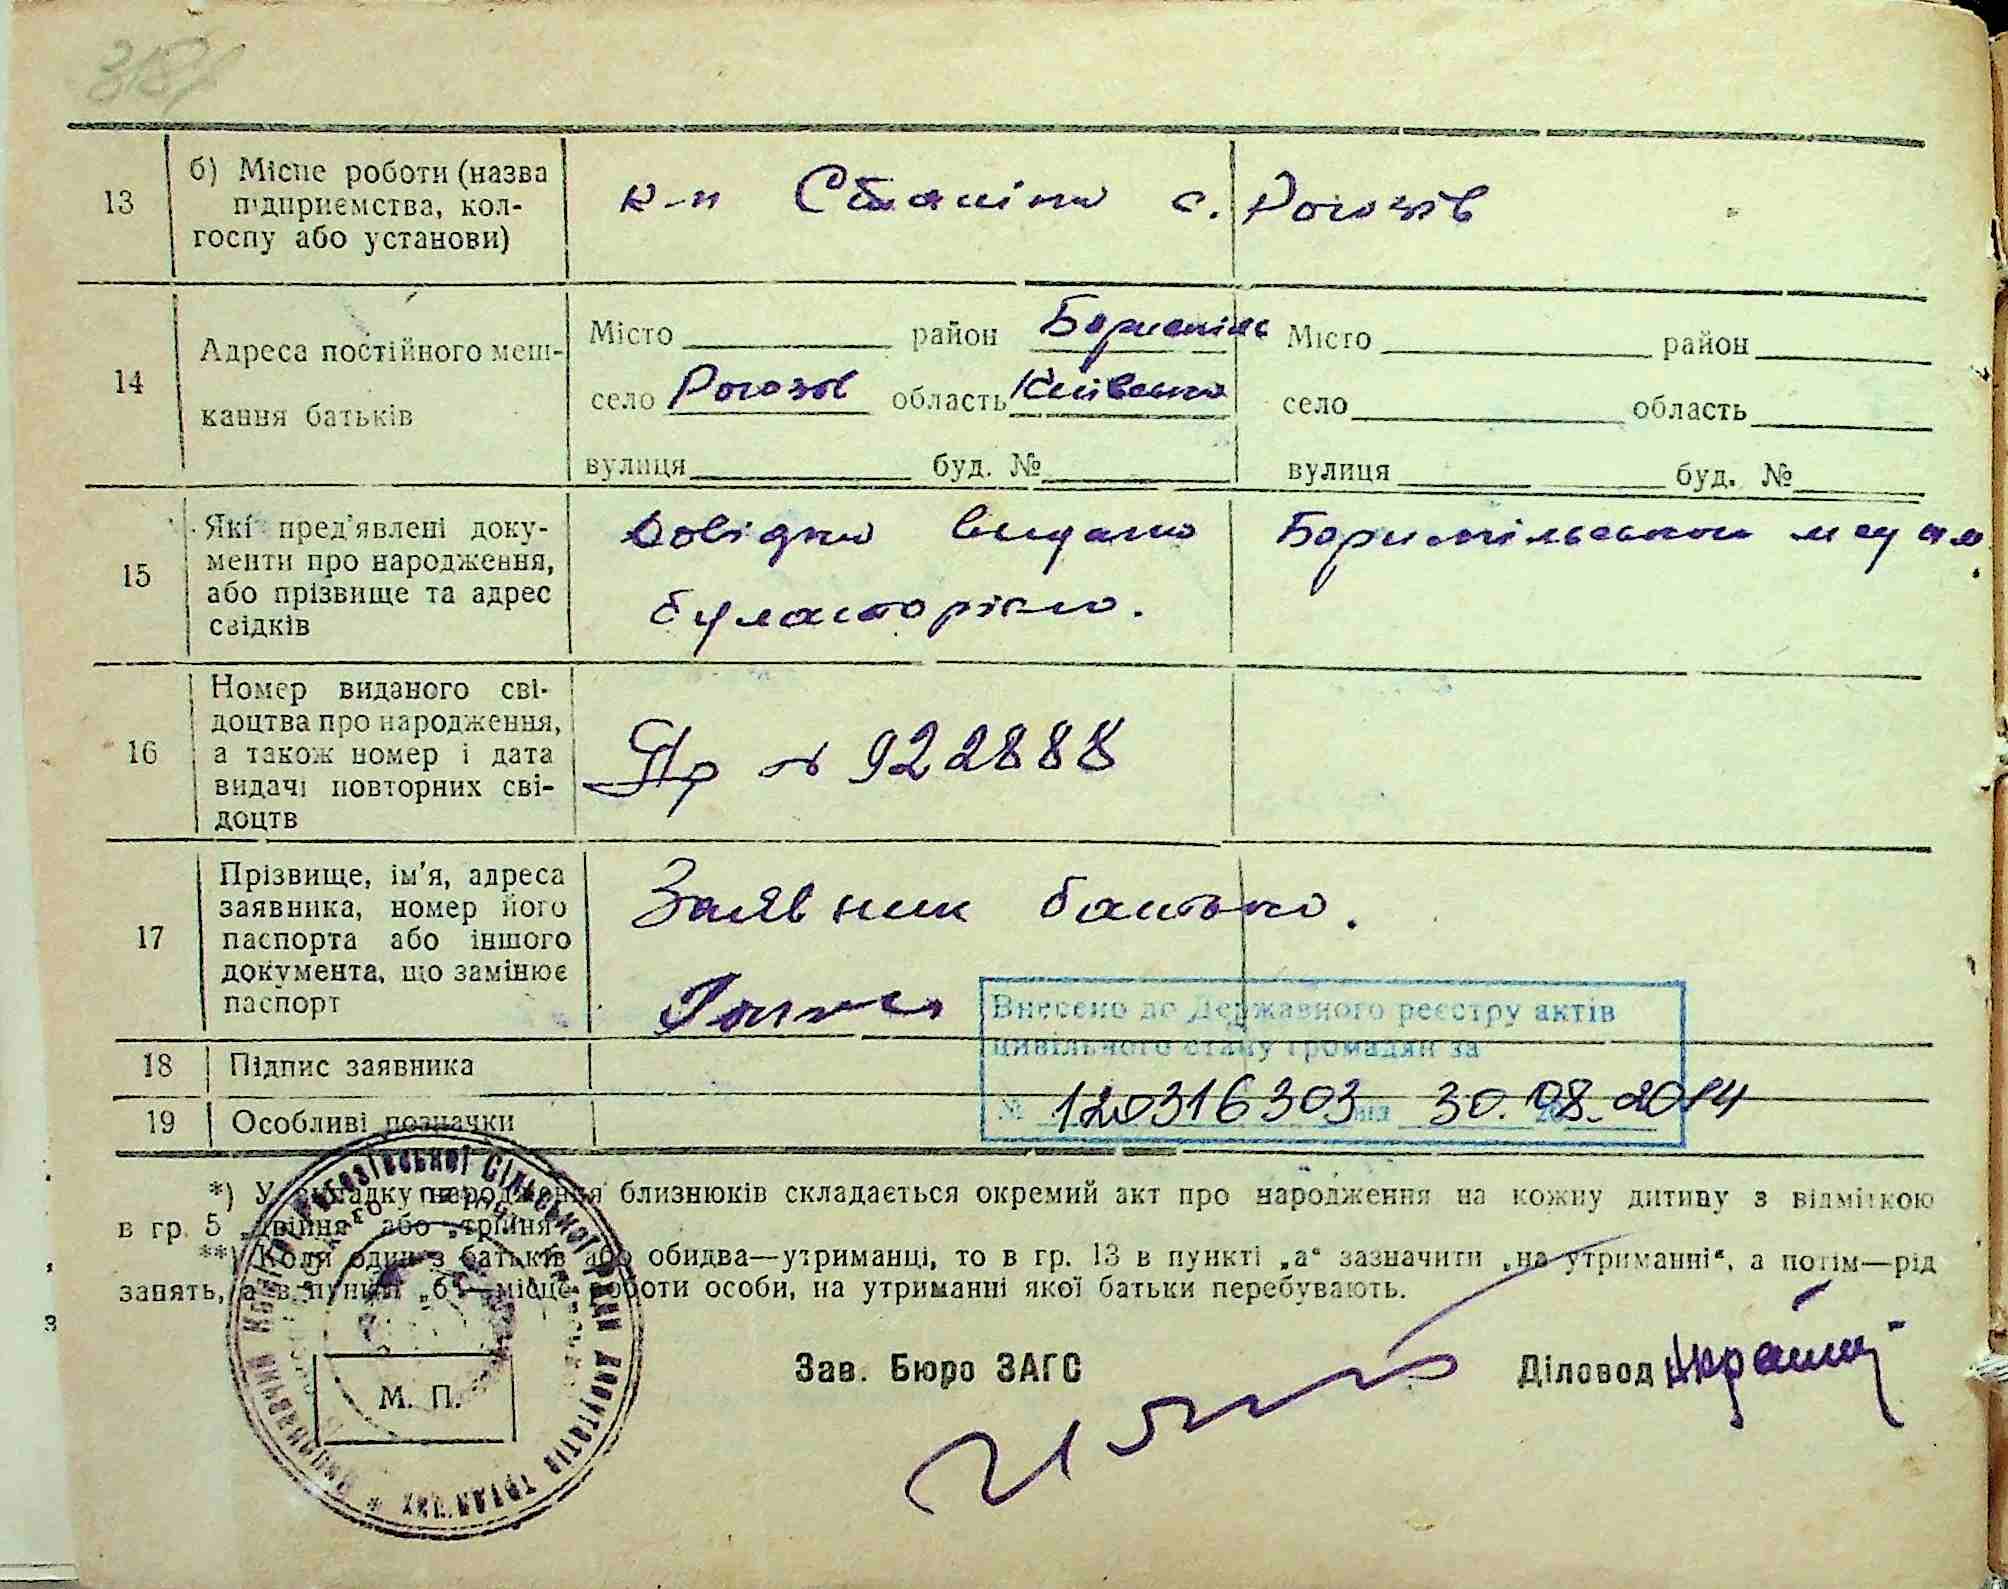 13
б) Місце роботи (назва
підприємства, кол-
госпу або установи)
к-п Сталіна с. Рогозів
14
Адреса постійного меш-
кання батьків
Місто район Бориспіль
село Рогозів область Київська
вулиця буд. №
Місто район
село область
вулиця буд. №
15
Які пред'явлені доку-
менти про народження,
або прізвище та адрес
свідків
Довідка видана Бориспільською
16
Номер виданого сві-
доцтва про народження,
а також номер і дата
видачі повторних сві-
доцтв
№ 922888
17
Прізвище, ім'я, адреса
заявника, номер його
паспорта або іншого
документа, що замінює
паспорт
Заявник батько.
18
Підпис заявника
19
Особливі позначки
Внесено до Державного реєстру актів
цивільного стану громадян за
№ 120316303 від 30.08.2014
*) У випадку народження близнюків складається окремий акт про народження на кожну дитину з відміткою
в гр. 5 „двійня" або „трійня"
**) Коли один з батьків або обидва—утриманці, то в гр. 13 в пункті „а" зазначити „на утриманні", а потім—рід
занять, а в пункті „б"—місце роботи особи, на утриманні якої батьки перебувають.
Зав. Бюро ЗАГС
Діловод
М. П.
Рогозівської Сільської Ради Депутатів Трудящих